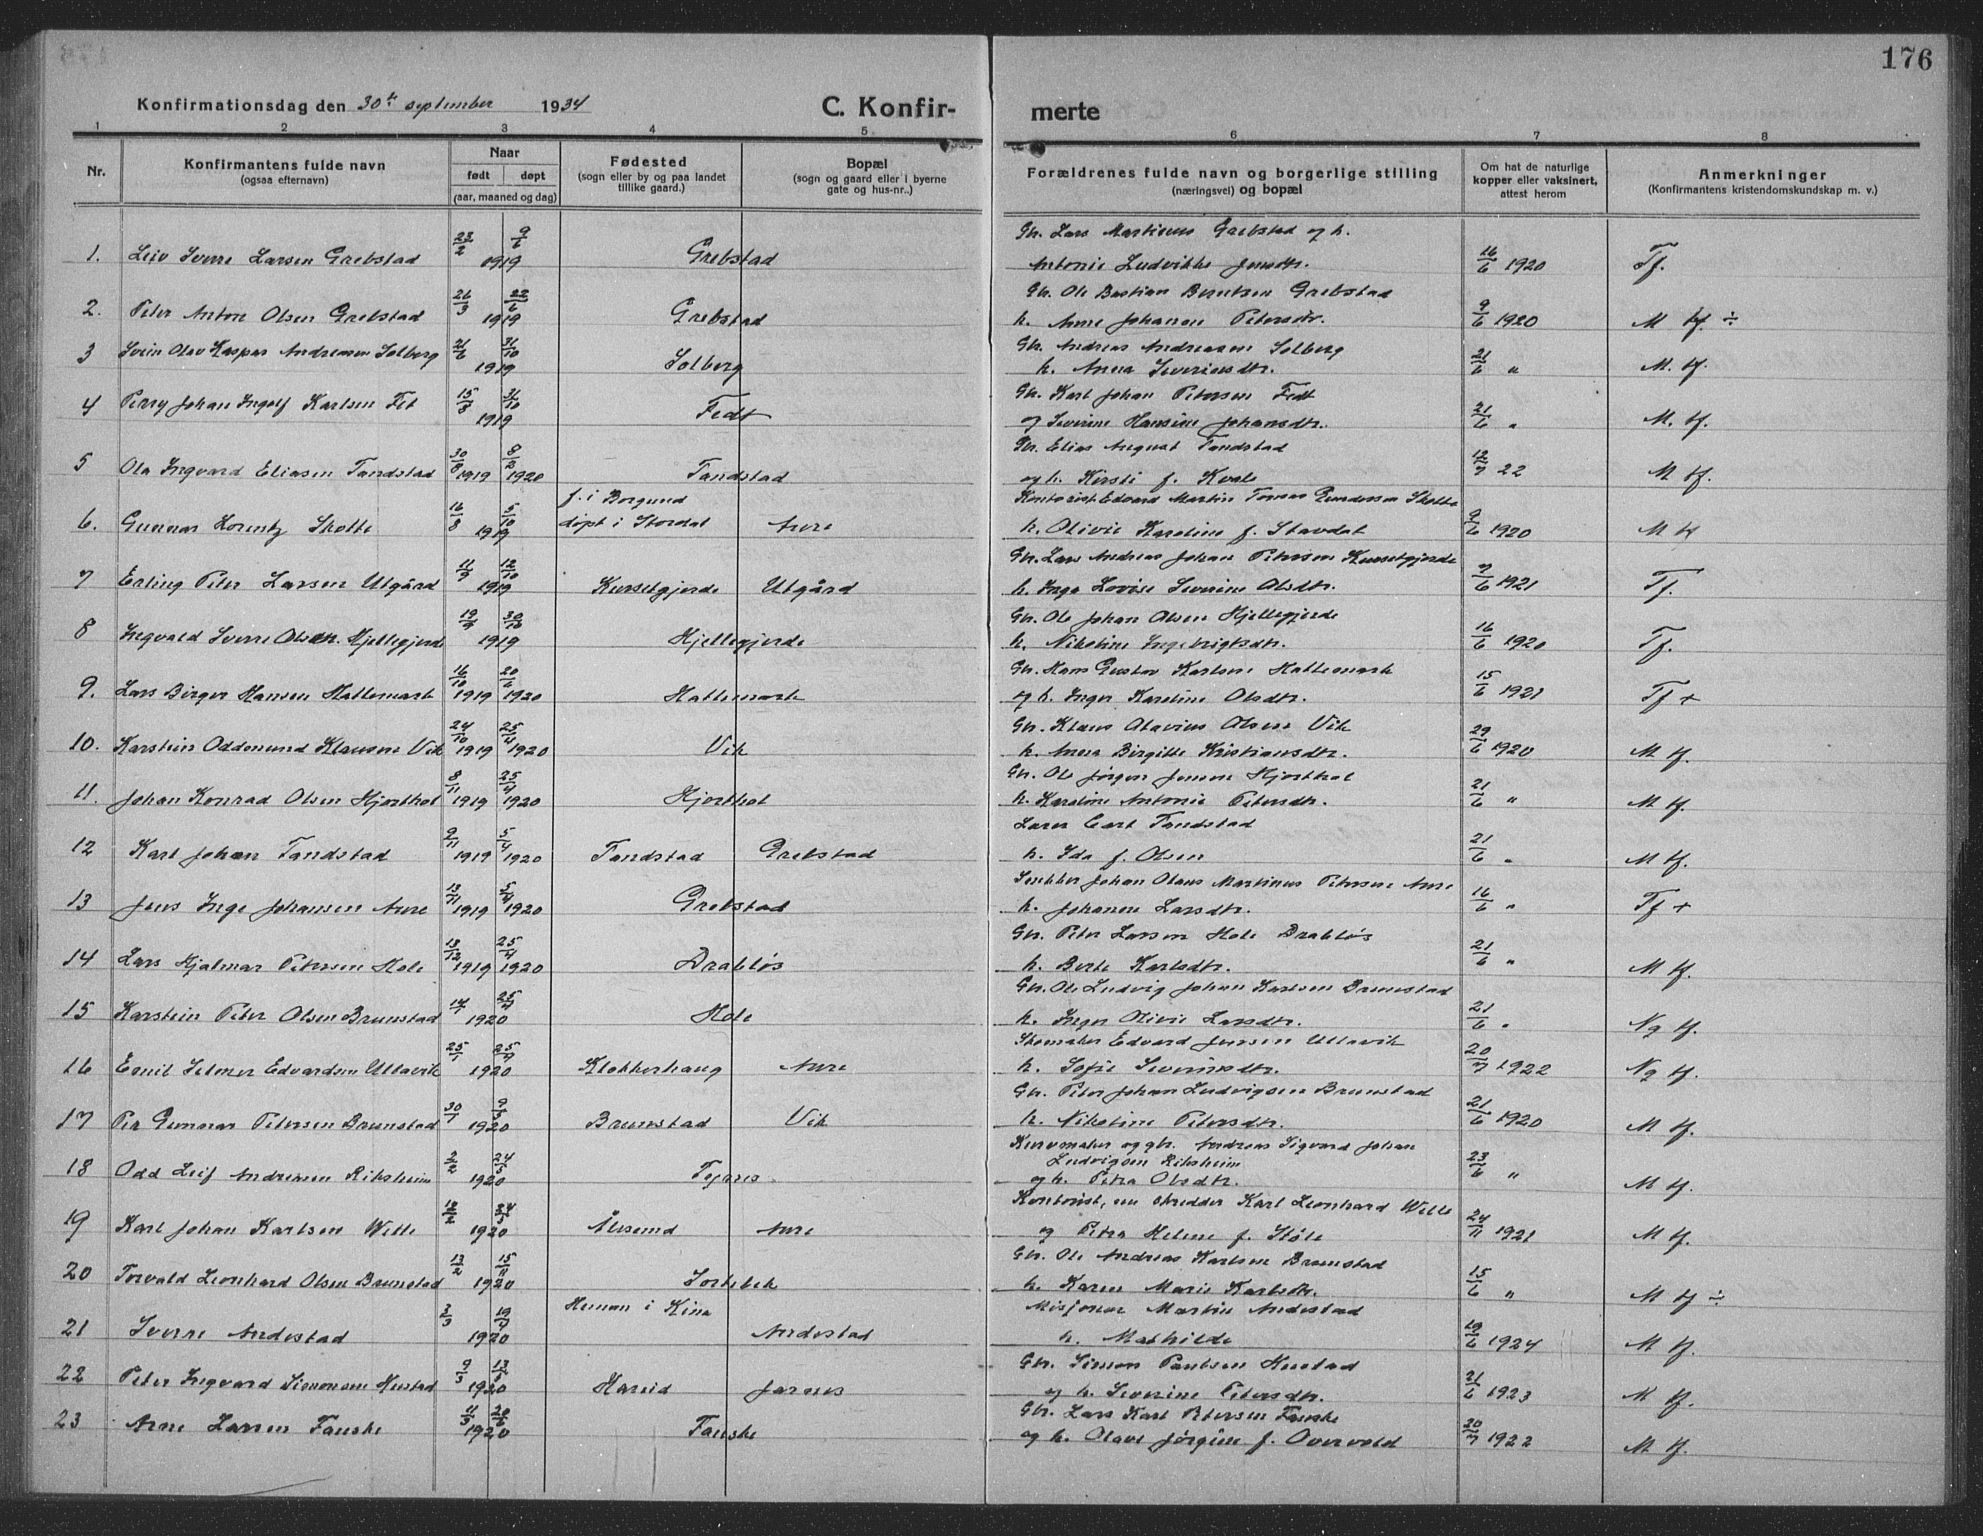 176
Konfirmationsdag den 30te september 1934
C. Konfir-
merte
1 2 3 4 5 6 7 8
Nr. | Konfirmantens fulde navn (ogsaa efternavn) | Naar født døpt (aar, maaned og dag) | Fødested (sogn eller by og paa landet tillike gaard.) | Bopæl (sogn og gaard eller i byerne gate og hus-nr..) | Forældrenes fulde navn og borgerlige stilling (næringsvei) og bopæl | Om hat de naturlige kopper eller vaksinert, attest herom | Anmerkninger (Konfirmantens kristendomskundskap m. v.)
1. Leiv Sverre Larsen Grebstad 23/2 9/6 1919 Grebstad Gbr. Lars Martinus Grebstad og h. Antonie Ludvikke Jensdtr. 16/6 1920 Tf.
2. Peter Anton Olsen Grebstad 26/3 22/6 1919 Grebstad Gbr. Ole Bastian Berntsen Grebstad h. Anne Johanne Petersdtr. 9/6 1920 M tf ÷
3 Svein Olav Kaspar Andreasen Solberg 21/6 31/10 1919 Solberg Gbr. Andreas Andreasen Solberg h. Anna Severinsdtr. 21/6 " M. tf.
4 Perry Johan Ingolf Karlsen Fet 15/8 31/10 1919 Fedt Gbr. Karl Johan Petersen Fedt og Severine Hansine Johansdtr. 21/6 " M. tf.
5 Ola Ingvard Eliasen Tandstad 30/8 1919 8/2 1920 Tandstad Gbr. Elias August Tandstad og h. Kirsti f. Kvale 12/7 22 M tf.
6. Gunnar Lorentz Skotte 16/8 5/10 1919 f. i Borgund døpt i Stordal Aure Kontorist Edvard Martin Tomas Gundersen Skotte h. Olivie Karoline f. Stavdal 9/6 1920 M tf
7 Erling Peter Larsen Utgård 11/9 12/10 1919 Kursetgjerde Utgård Gbr. Lars Andreas Johan Petersen Kursetgjerde h. Inga Lovise Severine Olsdtr. 7/6 1921 Tf.
8 Ingvald Sverre Olsen Hjellegjerde 19/9 30/10 1919 Hjellegjerde Gbr. Ole Johan Olsen Hjellegjerde h. Nikoline Ingebrigtsdtr. 16/6 1920 Tf.
9. Lars Birger Hansen Hattemark 16/10 1919 20/6 1920 Hattemark Gbr. Hans Gustav Karlsen Hattemark og h. Inger Karoline Olsdtr. 15/6 1921 Tf +
10. Karstein Oddmund Klausen Vik 24/10 1919 25/4 1920 Vik Gbr. Klaus Olavius Olsen Vik h. Anna Birgitte Kristiansdtr. 29/6 1920 M tf.
11. Johan Konrad Olsen Hjorthol 8/11 1919 25/4 1920 Hjorthol Gbr. Ole Jørgen Jensen Hjorthol h. Karoline Antonie Petersdtr. 21/6 " M tf.
12 Karl Johan Tandstad 9/11 1919 5/4 1920 Tandstad Grebstad Lærer Carl Tandstad h. Ida f. Olsen 21/6 " M tf.
13 Jens Inge Johansen Aure 13/11 1919 5/4 1920 Grebstad Snekker Johan Olaus Martinus Petersen Aure h. Johanne Larsdtr. 16/6 " Tf +
14 Lars Hjalmar Petersen Hole 13/12 1919 25/4 1920 Drabløs Gbr. Peter Larsen Hole Drabløs h. Berte Karlsdtr. 21/6 " M tf.
15 Karstein Peter Olsen Brunstad 14/1 25/4 1920 Hole Gbr. Ole Ludvig Johan Karlsen Brunstad h. Inger Olivie Larsdtr. 21/6 " Ng tf.
16 Emil Selmer Edvardsen Ullavik 25/1 25/4 1920 Klokkerhaug Aure Skomaker Edvard Jensen Ullavik h. Sofie Severinsdtr. 20/7 1922 Ng tf.
17 Per Gunnar Petersen Brunstad 30/1 9/5 1920 Brunstad Vik Gbr. Peter Johan Ludvigsen Brunstad h. Nikoline Petersdtr. 21/6 1920 M tf.
18 Odd Leif Andreasen Riksheim 2/2 24/5 1920 Tynes Kurvmaker og gbr. Andreas Sigvard Johan Ludvigsen Riksheim og h. Petra Olsdtr. 23/6 " M tf.
19 Karl Johan Karlsen Welle 12/2 24/5 1920 Ålesund Aure Kontorist, nu skredder Karl Leonhard Welle og Petra Helene f. Støle 24/11 1921 M tf.
20 Torvald Leonhard Olsen Brunstad 13/2 15/4 1920 Sortebek Gbr. Ole Andreas Karlsen Brunstad h. Karen Marie Karlsdtr. 15/6 " M tf ÷
21 Sverre Andestad 3/3 19/4 1920 Hunan i Kina Andestad Misjonær Martin Andestad h. Mathilde 19/6 1924 M tf.
22 Peter Ingvard Simonsen Hustad 9/3 13/5 1920 Hareid Jarnes Gbr. Simon Paulsen Hustad og h. Severine Petersdtr. 21/6 1923 M tf.
23 Arne Larsen Fauske 11/3 20/6 1920 Fauske Gbr. Lars Karl Petersen Fauske og h. Olave Jørgine f. Overvold 20/7 1922 M tf.